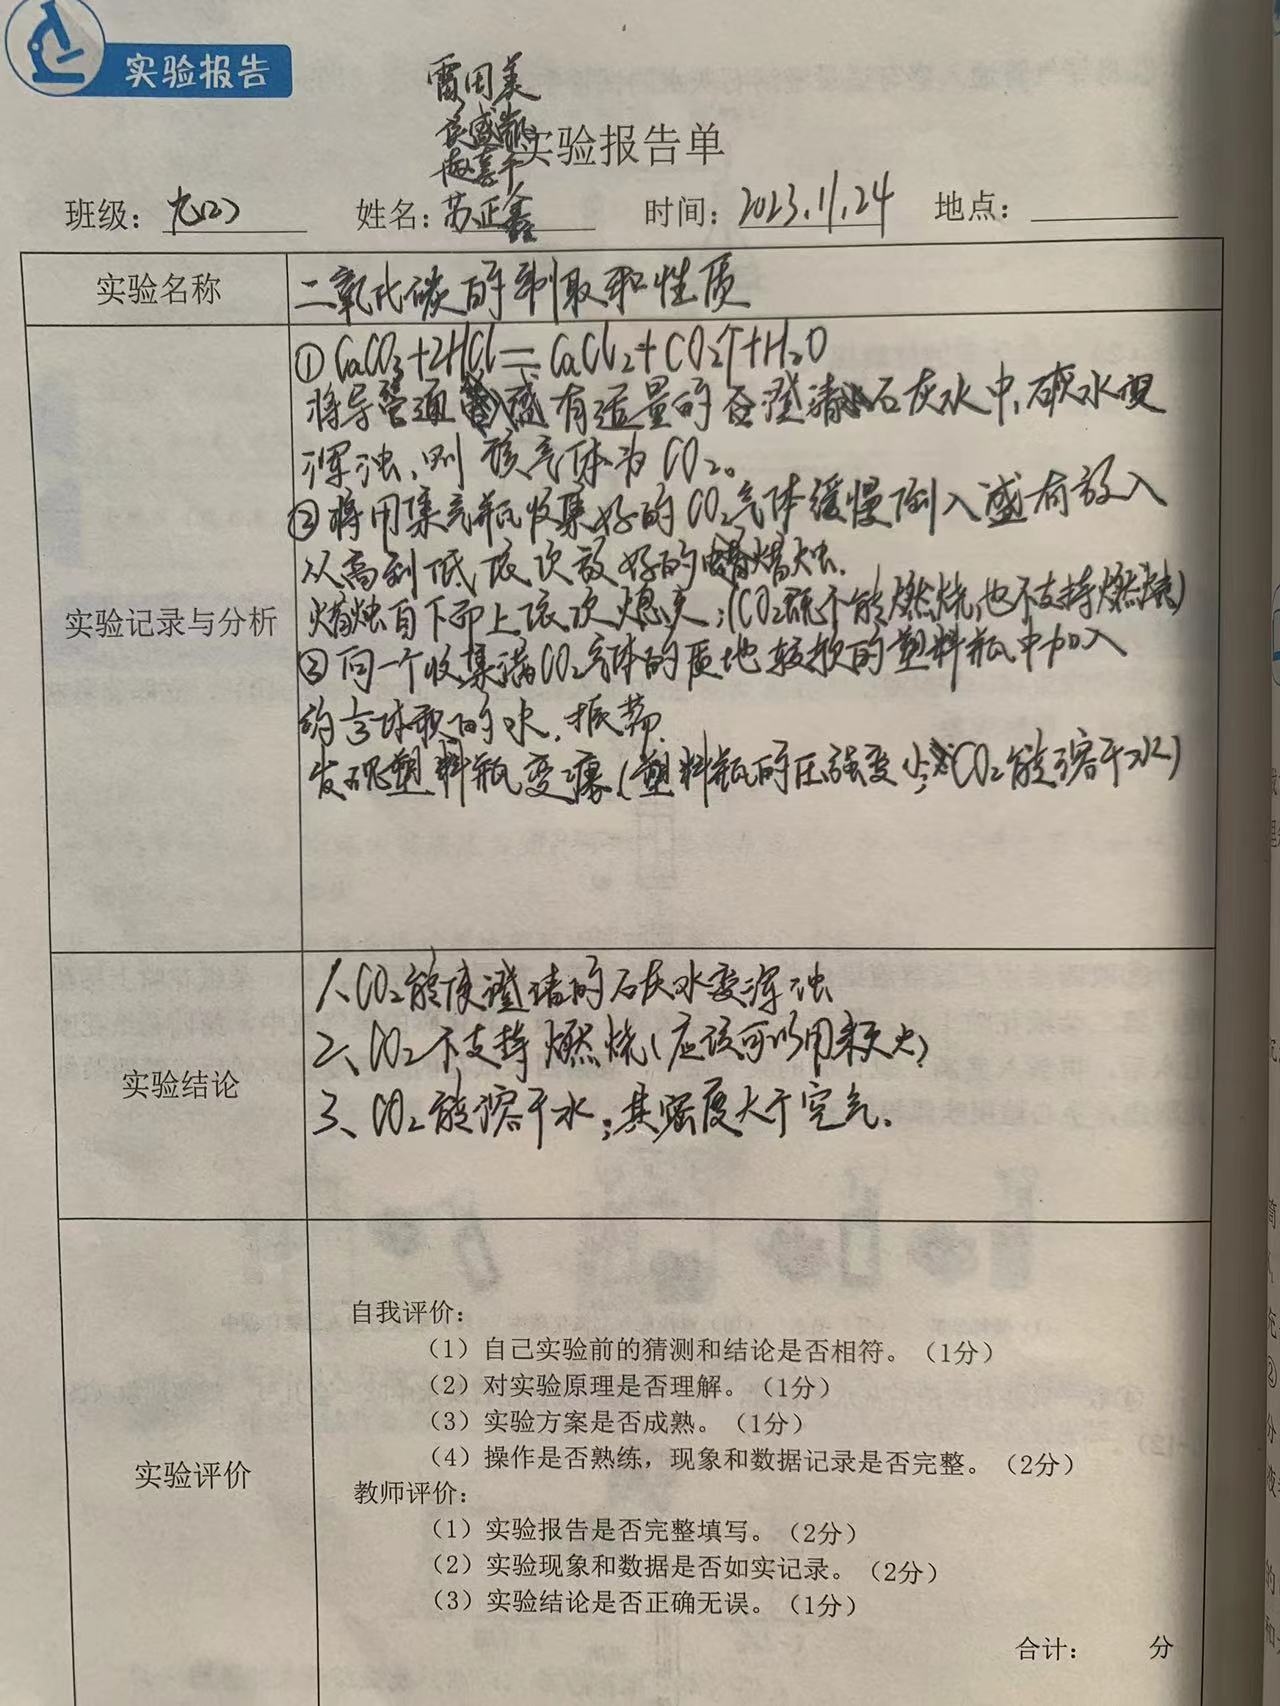 实验报告
雷因美
实验报告单
班级：九(2) 姓名：苏正鑫 时间：2023.11.24 地点：
实验名称
二氧化碳的制取和性质
实验记录与分析
①CaCO₃+2HCl=CaCl₂+CO₂↑+H₂O
将导管通 盛有适量的 澄清 石灰水中,石灰水变
浑浊,则该气体为CO₂。
②将用集气瓶收集好的CO₂气体缓慢倒入盛有放入
从高到低依次放好的 蜡烛.
蜡烛自下而上依次熄灭;(CO₂既不能燃烧,也不支持燃烧)
③向一个收集满CO₂气体的质地较软的塑料瓶中加入
约⅓体积的水,振荡.
发现塑料瓶变瘪.(塑料瓶的压强变小,CO₂能溶于水)
实验结论
1、CO₂能使澄清的石灰水变浑浊
2、CO₂不支持燃烧(应该可以用来灭火)
3、CO₂能溶于水;其密度大于空气.
实验评价
自我评价：
（1）自己实验前的猜测和结论是否相符。（1分）
（2）对实验原理是否理解。（1分）
（3）实验方案是否成熟。（1分）
（4）操作是否熟练，现象和数据记录是否完整。（2分）
教师评价：
（1）实验报告是否完整填写。（2分）
（2）实验现象和数据是否如实记录。（2分）
（3）实验结论是否正确无误。（1分）
合计： 分